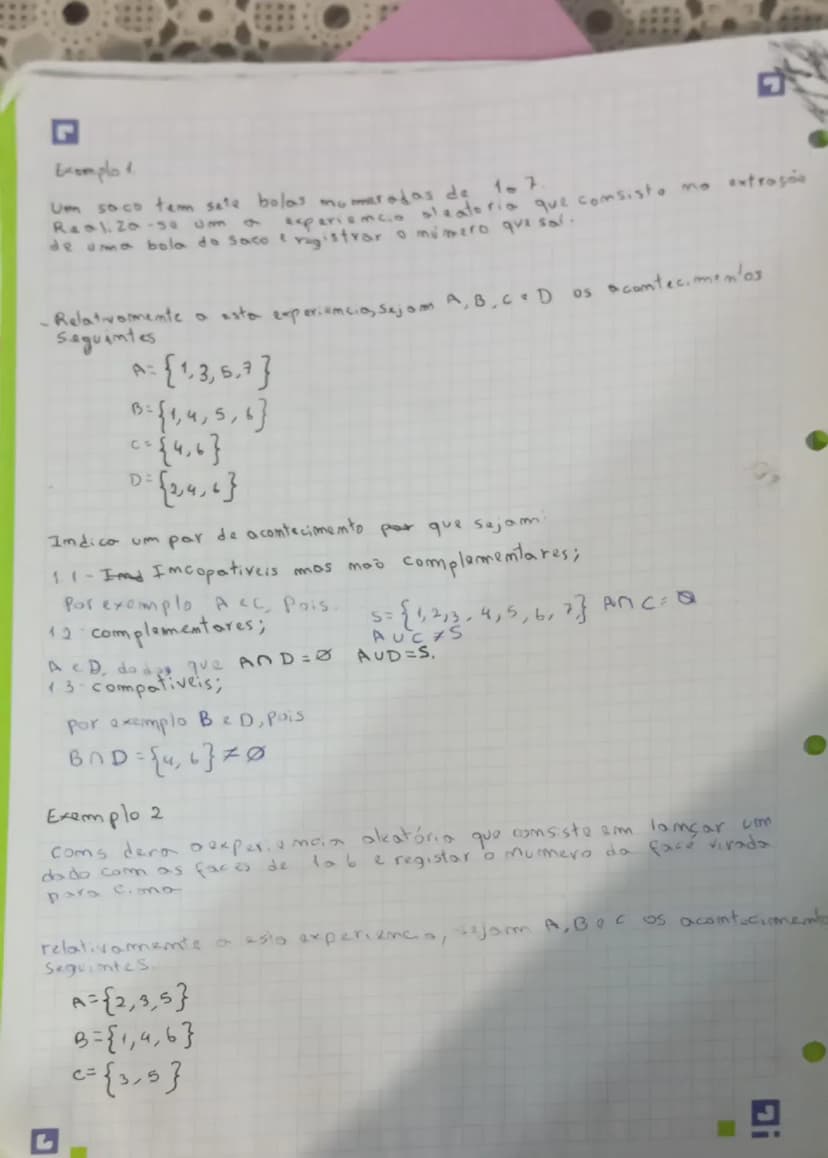 Exemplo 1
Um saco tem sete bolas numeradas de 1 a 7.
Realiza-se um a experiencia aleatoria que consiste na extração
de uma bola do saco e registrar o número que sai.
- Relativamente a esta experiencia, sejam A, B, C e D os acontecimentos
seguintes
A = {1, 3, 5, 7}
B = {1, 4, 5, 6}
C = {4, 6}
D = {2, 4, 6}
Indico um par de acontecimento que sejam:
1 1 - Imcopativeis mas maõ complementares;
Por exemplo A e C, Pois. S = {1, 2, 3, 4, 5, 6, 7} A ∩ C = ∅
1 2 complementares; A ∪ C ≠ S
A e D, que A ∩ D = ∅ A ∪ D = S.
1 3 - compativeis;
por exemplo B e D, pois
B ∩ D = {4, 6} ≠ ∅
Exemplo 2
Cons dera a experiencia aleatória que consiste em lançar um
dado com as faces de 1 a 6 e registar o numero da face virada
para cima
relativamente a esta experiencia, sejam A, B e C os acontecimento
seguintes.
A = {2, 3, 5}
B = {1, 4, 6}
C = {3, 5}